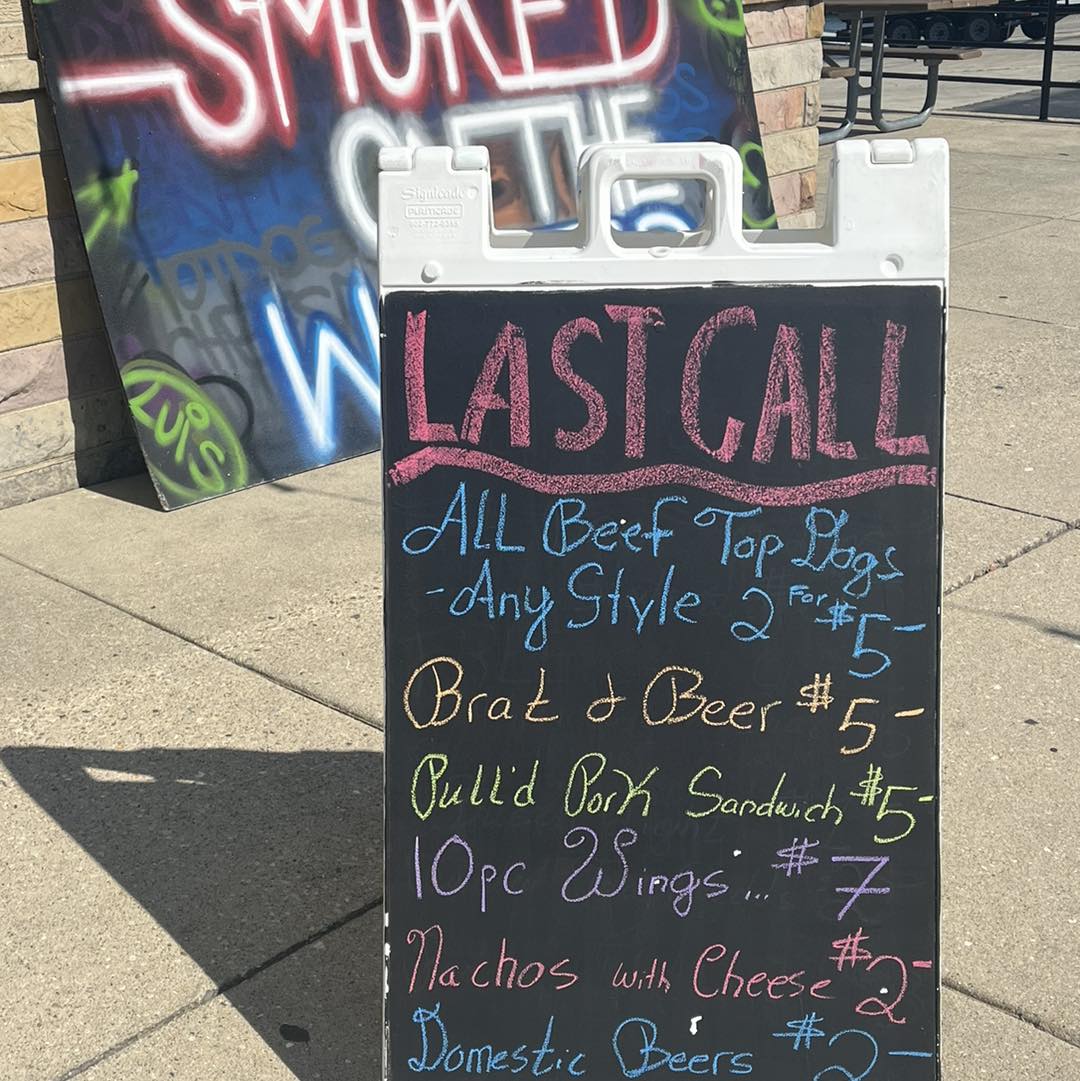 SMOKED
ON THE
W
HOTDOG
LUIS
Signicade
PLASTICADE
LAST CALL
ALL Beef Top Dogs
-Any Style 2 For $5-
Brat & Beer $5-
Pull'd Pork Sandwich $5-
10pc Wings... $7
Nachos with Cheese $2-
Domestic Beers $2-